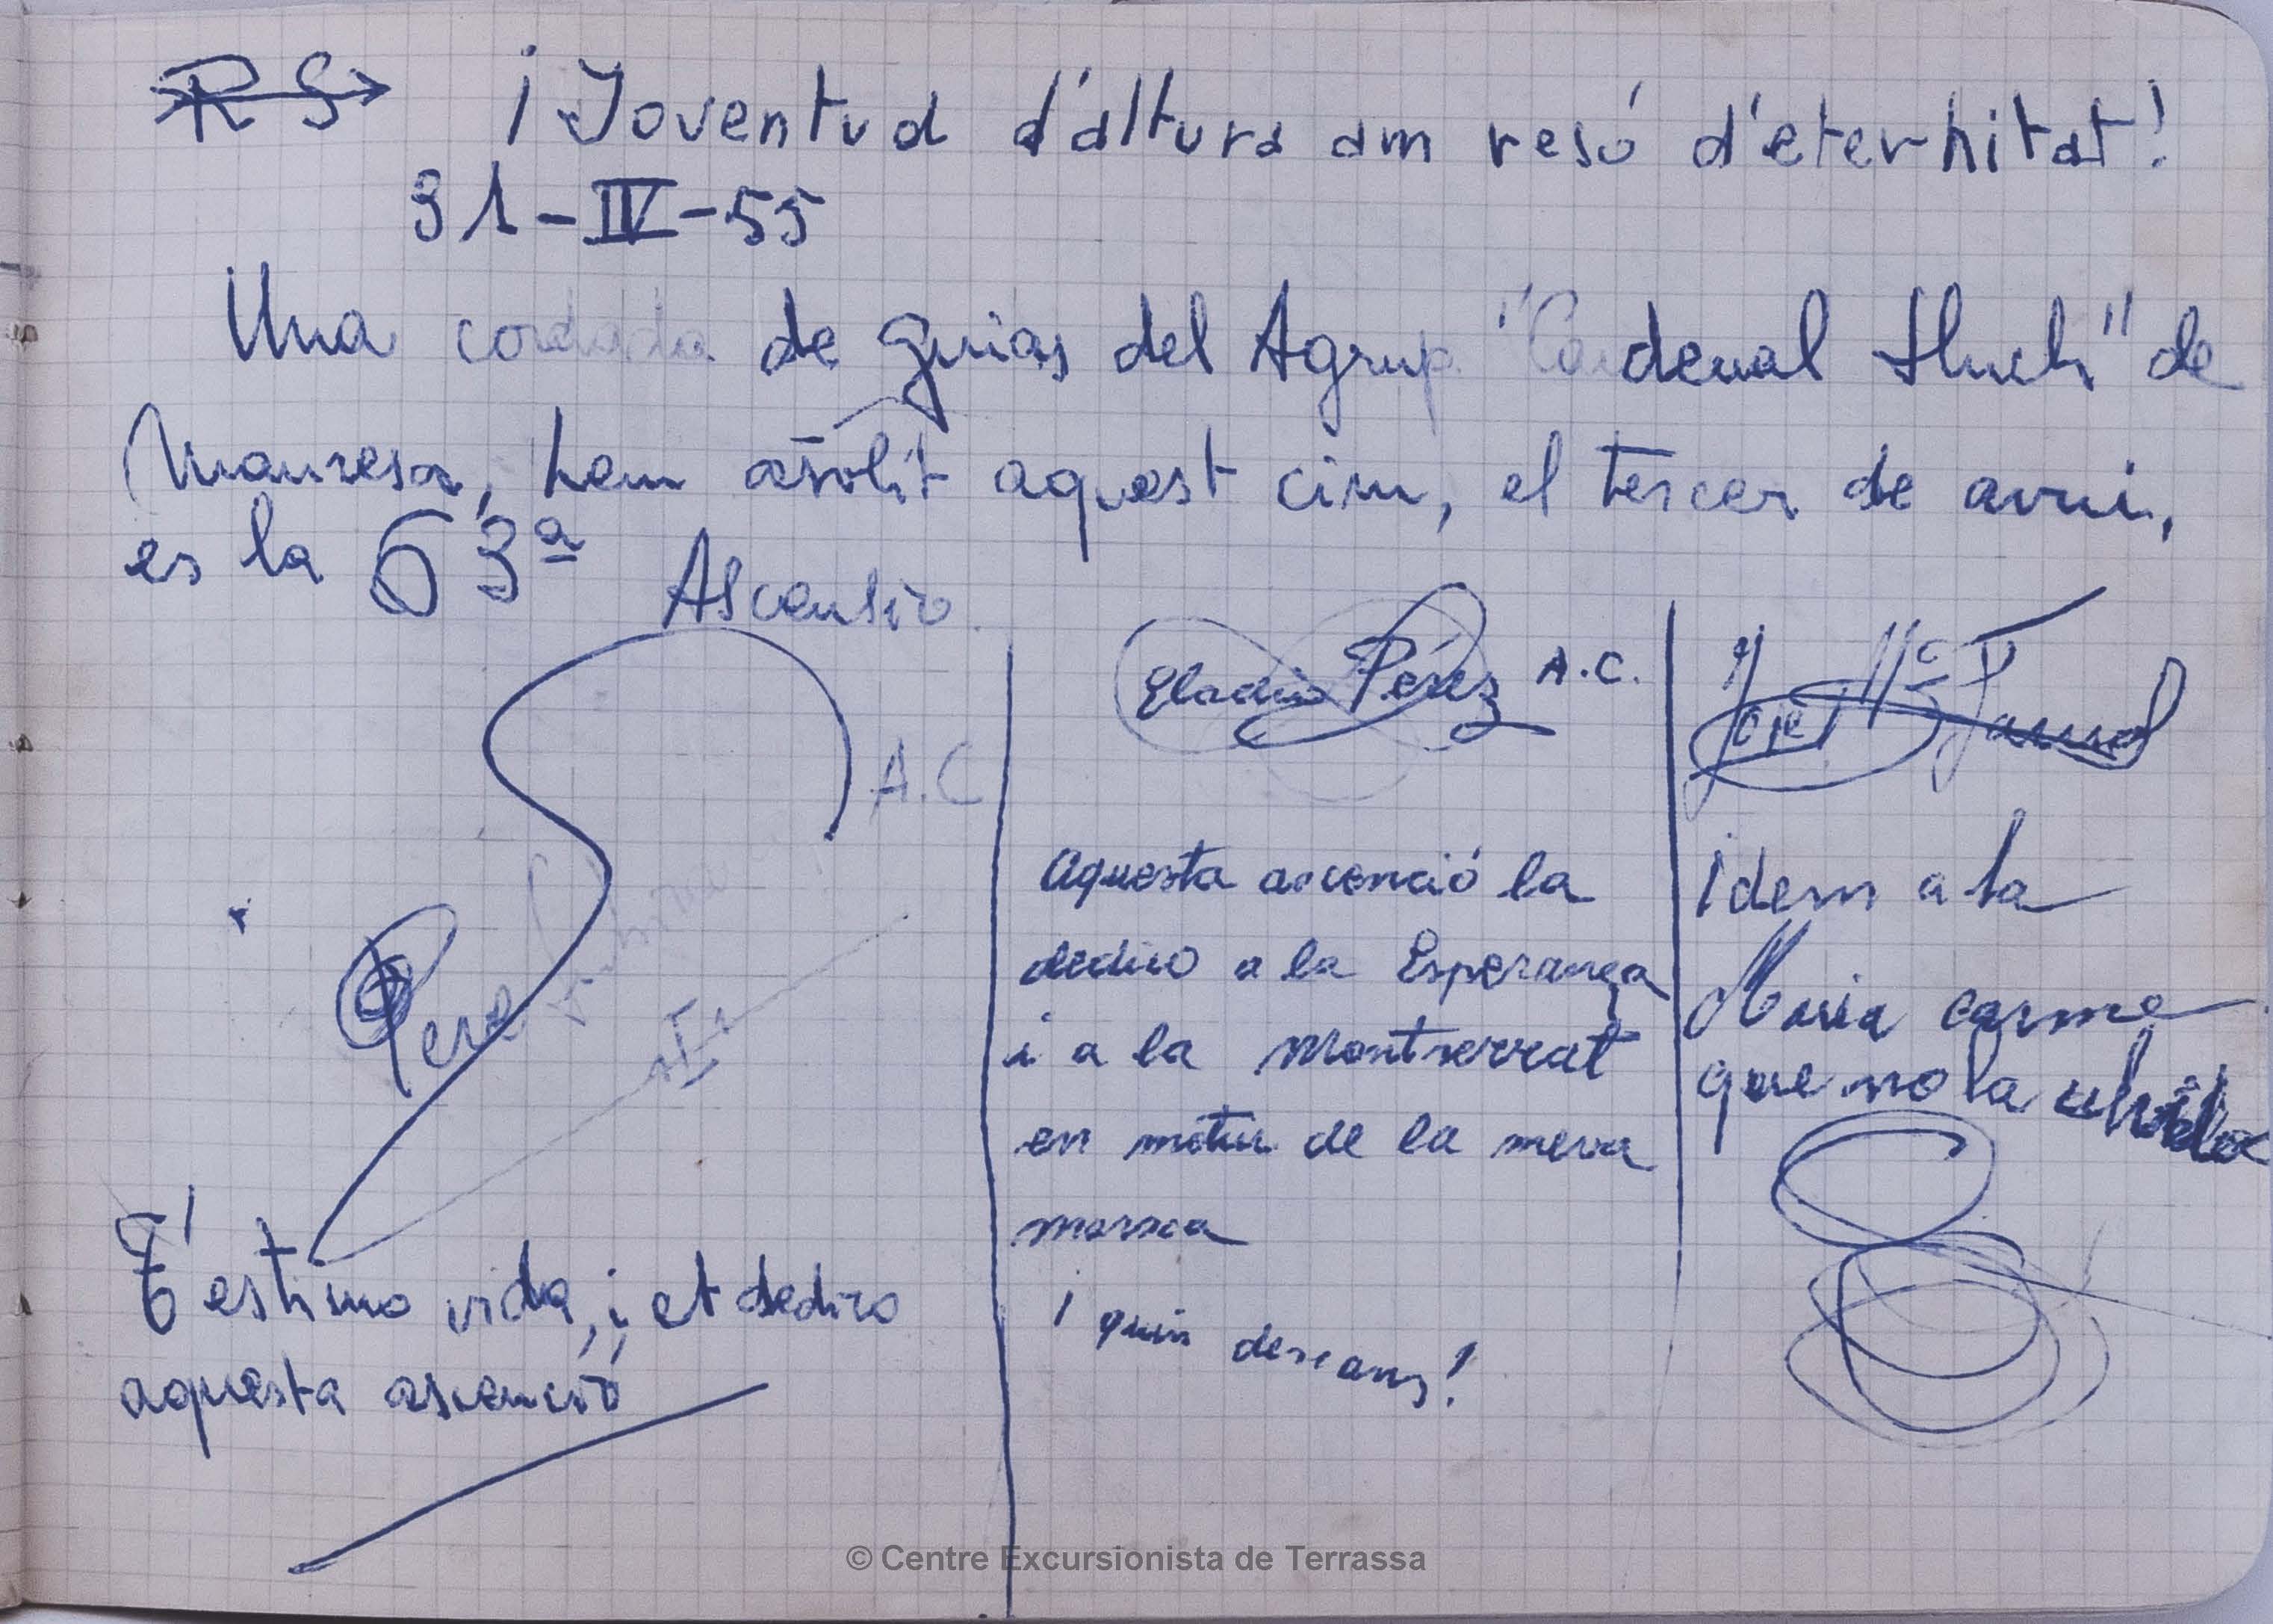 RS ¡Joventud d'altura am resó d'eternitat!
31-IV-55
Una cordada de guias del Agrup. "Cardenal Lluch" de
Manresa, hem asolit aquest cim, el tercer de avui,
es la 63ª Ascensio.
A.C
Pere
T'estimo vida, i et dedico
aquesta ascenció
Eladio Pérez A.C.
Aquesta ascenció la
dedico a la Esperança
i a la Montserrat
en motiu de la meva
marxa
¡quin descans!
José Mª
idem a la
Maria carme
que no la
© Centre Excursionista de Terrassa